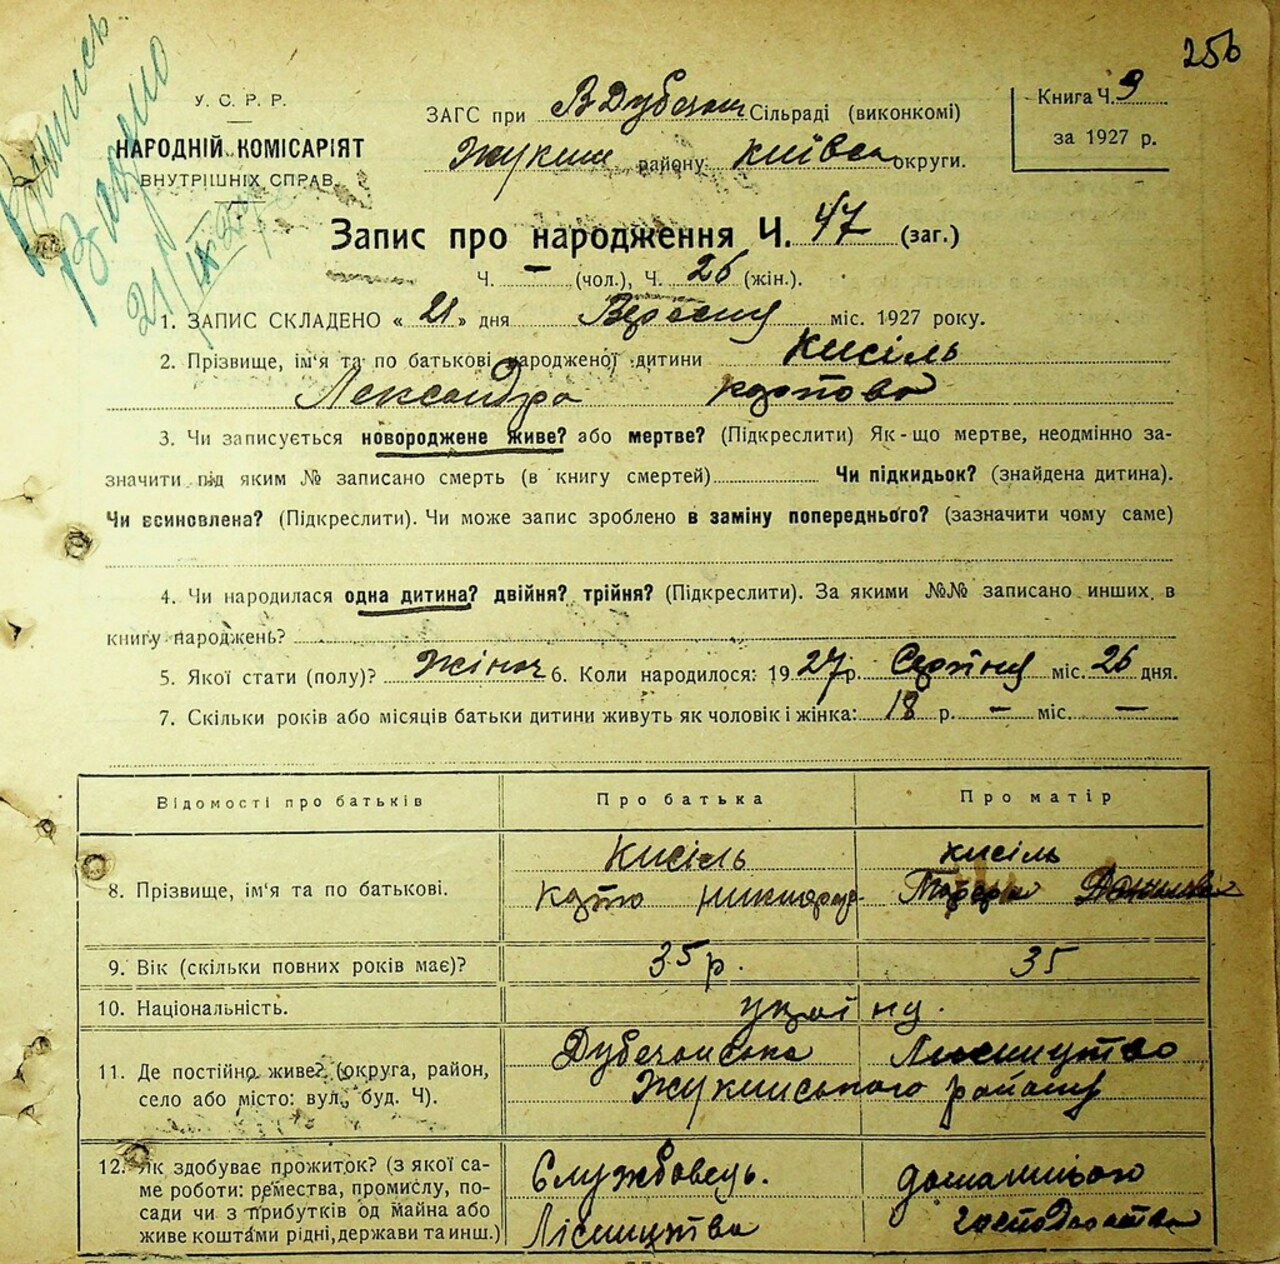 256
Випись
Видано
21/IX 27
У. С. Р. Р.
НАРОДНІЙ КОМІСАРІЯТ
ВНУТРІШНІХ СПРАВ
ЗАГС при В Дубечан Сільраді (виконкомі)
Жукин району Київськ округи.
Книга Ч. 9
за 1927 р.
Запис про народження Ч. 47 (заг.)
Ч. — (чол.), Ч. 26 (жін.).
1. ЗАПИС СКЛАДЕНО « 21 » дня Вересня міс. 1927 року.
2. Прізвище, ім'я та по батькові народженої дитини Кисіль
Лександра Карпова
3. Чи записується новороджене живе? або мертве? (Підкреслити) Як-що мертве, неодмінно за-
значити під яким № записано смерть (в книгу смертей) Чи підкидьок? (знайдена дитина).
Чи всиновлена? (Підкреслити). Чи може запис зроблено в заміну попереднього? (зазначити чому саме)
4. Чи народилася одна дитина? двійня? трійня? (Підкреслити). За якими №№ записано инших в
книгу народжень?
5. Якої стати (полу)? Жіноч 6. Коли народилося: 1927 р. Серпня міс. 26 дня.
7. Скільки років або місяців батьки дитини живуть як чоловік і жінка: 18 р. — міс. —
Відомості про батьків Про батька Про матір
8. Прізвище, ім'я та по батькові.
Кисіль Кисіль
Карпо
9. Вік (скільки повних років має)? 35 р. 35
10. Національність. україн.
11. Де постійно живе? (округа, район,
село або місто: вул., буд. Ч).
Дубечанське Лісництво
Жукинського району
12. Як здобуває прожиток? (з якої са-
ме роботи: ремества, промислу, по-
сади чи з прибутків од майна або
живе коштами рідні, держави та инш.)
Службовець. домашнього
Лісництва господарства